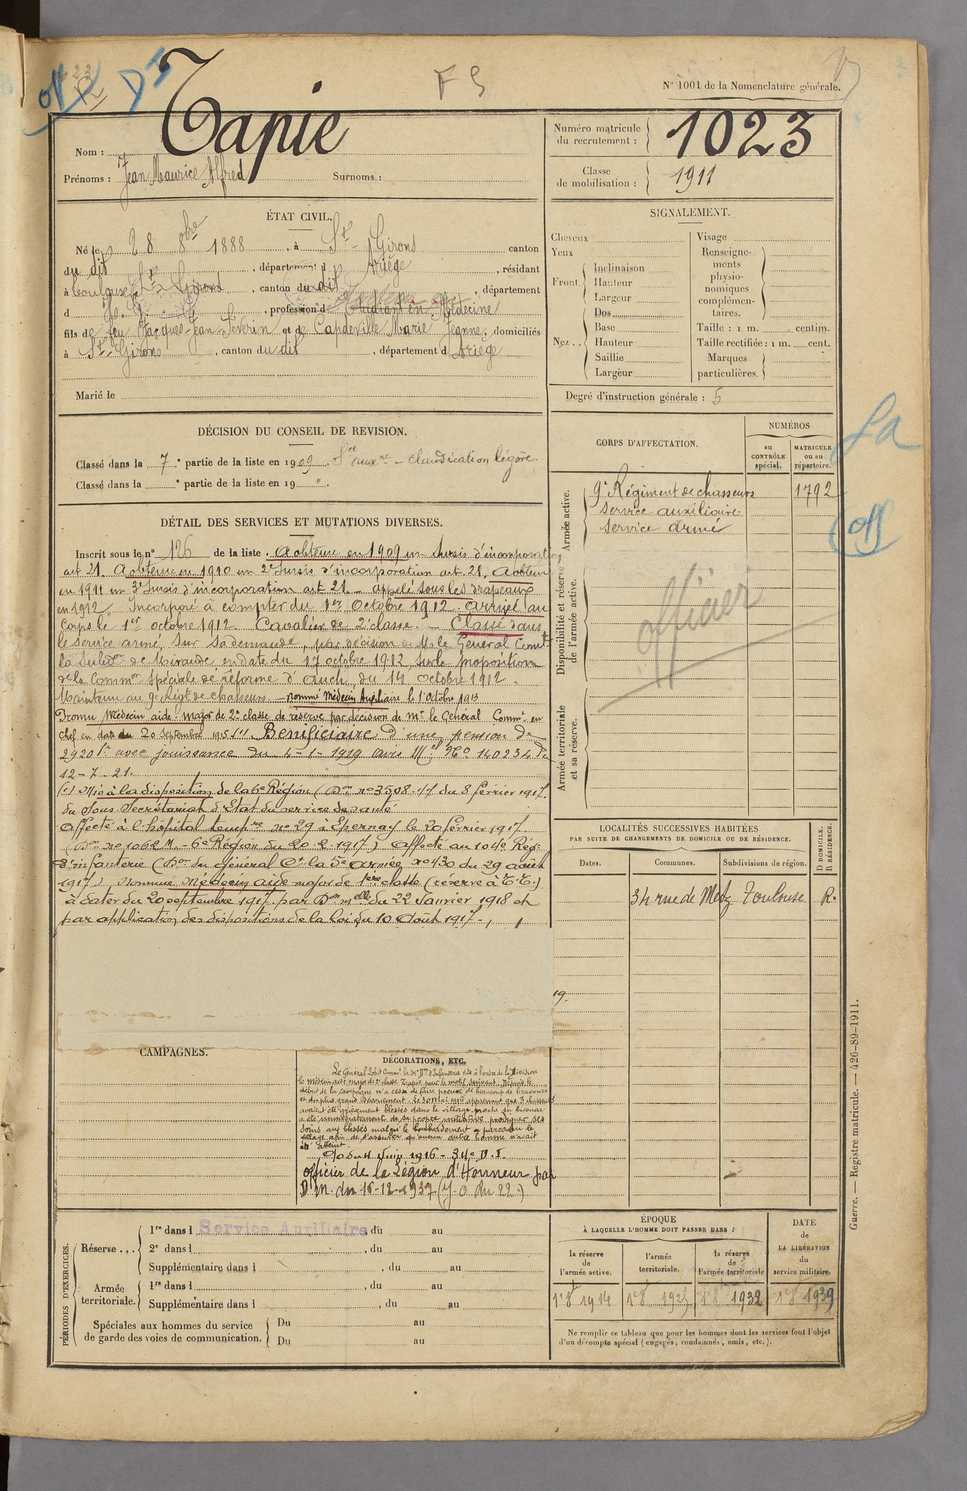 N° 1001 de la Nomenclature générale.
Nom : Tapie
Prénoms : Jean Maurice Alfred Surnoms :
Numéro matricule du recrutement : 1023
Classe de mobilisation : 1911
ÉTAT CIVIL.
Né le 28 8bre 1888, à St Girons canton
du dit, département d Ariège, résidant
à Toulouse St Girons, canton du dit, département
d, profession d Etudiant en Médecine
fils de feu Jacques Jean Séverin et de Capdeville Marie Jeanne, domiciliés
à St Girons, canton du dit, département d Ariège
Marié le
SIGNALEMENT.
Cheveux
Yeux
Front. Inclinaison
Hauteur
Largeur
Nez .. Dos
Base
Hauteur
Saillie
Largeur
Visage
Renseignements physionomiques complémentaires.
Taille : 1 m. centim.
Taille rectifiée : 1 m. cent.
Marques particulières.
Degré d'instruction générale : 5
DÉCISION DU CONSEIL DE REVISION.
Classé dans la 7e partie de la liste en 1909. Sce auxre - claudication légère.
Classé dans la e partie de la liste en 19 " .
CORPS D'AFFECTATION.
NUMÉROS
au CONTRÔLE spécial.
MATRICULE ou au répertoire.
Armée active.
9e Régiment de chasseurs 1792
Service auxiliaire
Service armé
Disponibilité et réserve de l'armée active.
officier
Armée territoriale et sa réserve.
La
off
DÉTAIL DES SERVICES ET MUTATIONS DIVERSES.
Inscrit sous le n° 126 de la liste. A obtenu en 1909 un sursis d'incorporation
art 21. A obtenu en 1910 un 2e sursis d'incorporation art. 21. A obtenu
en 1911 un 3e sursis d'incorporation art 21. - appelé sous les drapeaux
en 1912. Incorporé à compter du 1er Octobre 1912. arrivé au
Corps le 1er octobre 1912 Cavalier de 2e classe. - Classé dans
le service armé, sur sa demande, par décision de M. le Général Comt
la Subdon de Mirande, en date du 17 octobre 1912 sur la proposition
de la Common Spéciale de réforme d'Auch, du 14 octobre 1912.
Maintenu au 9e Régt de chasseurs - nommé Médecin Auxiliaire le 1 Octobre 1913
Promu Médecin aide-major de 2e classe de réserve par décision de Mr le Général Commt en
chef en date du 20 Septembre 1915 (1) Bénéficiaire d'une pension de
2920f avec jouissance du 4-1-1919 avis Mel No 140234 du
12-7-21.
(1) Mis à la disposition de la 6e Région (Don no 3598 /7 du 8 février 1917
du Sous Secrétariat d'Etat du service de santé
affecté à l'hôpital tempre no 29 à Epernay le 20 février 1917
6e Région du 20.2.1917) affecté au 104e Rég.
d'infanterie (Don du Général Ct la 5e armée no 430 du 29 août
1917). Nommé Médecin aide major de 1ère classe (réserve à T.T.)
à dater du 20 septembre 1917. par Don melle du 22 Janvier 1918 et
par application des dispositions de la loi du 10 Août 1917.
LOCALITÉS SUCCESSIVES HABITÉES
PAR SUITE DE CHANGEMENTS DE DOMICILE OU DE RÉSIDENCE.
Dates. Communes. Subdivisions de région. D DOMICILE. R RÉSIDENCE.
34 rue de Metz Toulouse R.
CAMPAGNES.
DÉCORATIONS, ETC.
début de la campagne n'a cessé de faire preuve de beaucoup de bravoure
soins aux blessés malgré le bombardement
officier de la Légion d'Honneur par
D. m. du 16-12-1937 (J. O du 22.)
PÉRIODES D'EXERCICES.
Réserve ... 1re dans l Service Auxiliaire du au
2e dans l, du au
Supplémentaire dans l, du au
Armée territoriale. 1re dans l, du au
Supplémentaire dans l, du au
Spéciales aux hommes du service de garde des voies de communication. Du au
Du au
ÉPOQUE
À LAQUELLE L'HOMME DOIT PASSER DANS :
la réserve de l'armée active.
l'armée territoriale.
la réserve de l'armée territoriale
DATE de LA LIBÉRATION du service militaire.
1r 8 1914 1r 8 1925 1r 8 1932 1r 8 1939
Ne remplir ce tableau que pour les hommes dont les services font l'objet
d'un décompte spécial (engagés, condamnés, omis, etc.).
Guerre. — Registre matricule. — 426-89-1911.